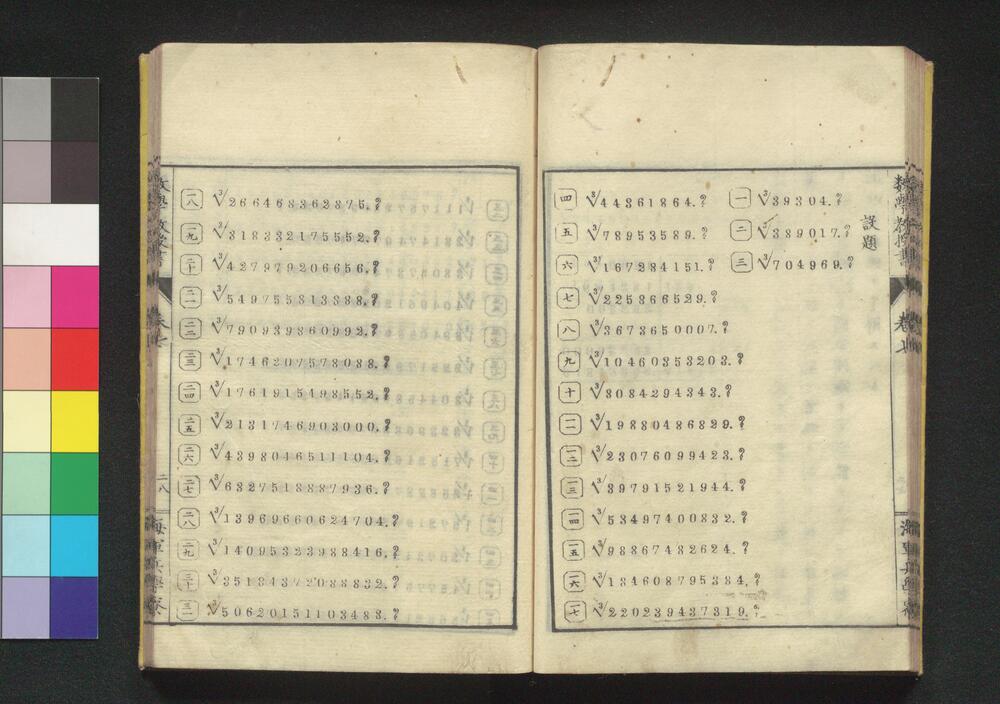 数學教授書
巻七
海軍兵學寮
設題
一 ∛39304.?
二 ∛389017.?
三 ∛704969.?
四 ∛44361864.?
五 ∛78953589.?
六 ∛167284151.?
七 ∛225866529.?
八 ∛3673650007.?
九 ∛10460353203.?
十 ∛8084294343.?
一一 ∛19880486829.?
一二 ∛23076099423.?
一三 ∛39791521944.?
一四 ∛53497400832.?
一五 ∛98867482624.?
一六 ∛184608795384.?
一七 ∛220239437319.?
一八 ∛266468362875.?
一九 ∛318332175552.?
二十 ∛427979206656.?
二一 ∛549755813888.?
二二 ∛790939860992.?
二三 ∛1746207578088.?
二四 ∛1761915498552.?
二五 ∛2131746903000.?
二六 ∛4398046511104.?
二七 ∛6327518887936.?
二八 ∛13969660624704.?
二九 ∛14095323988416.?
三十 ∛35184372088832.?
三一 ∛50620151103488.?
数學教授書
巻七
二八
海軍兵學寮